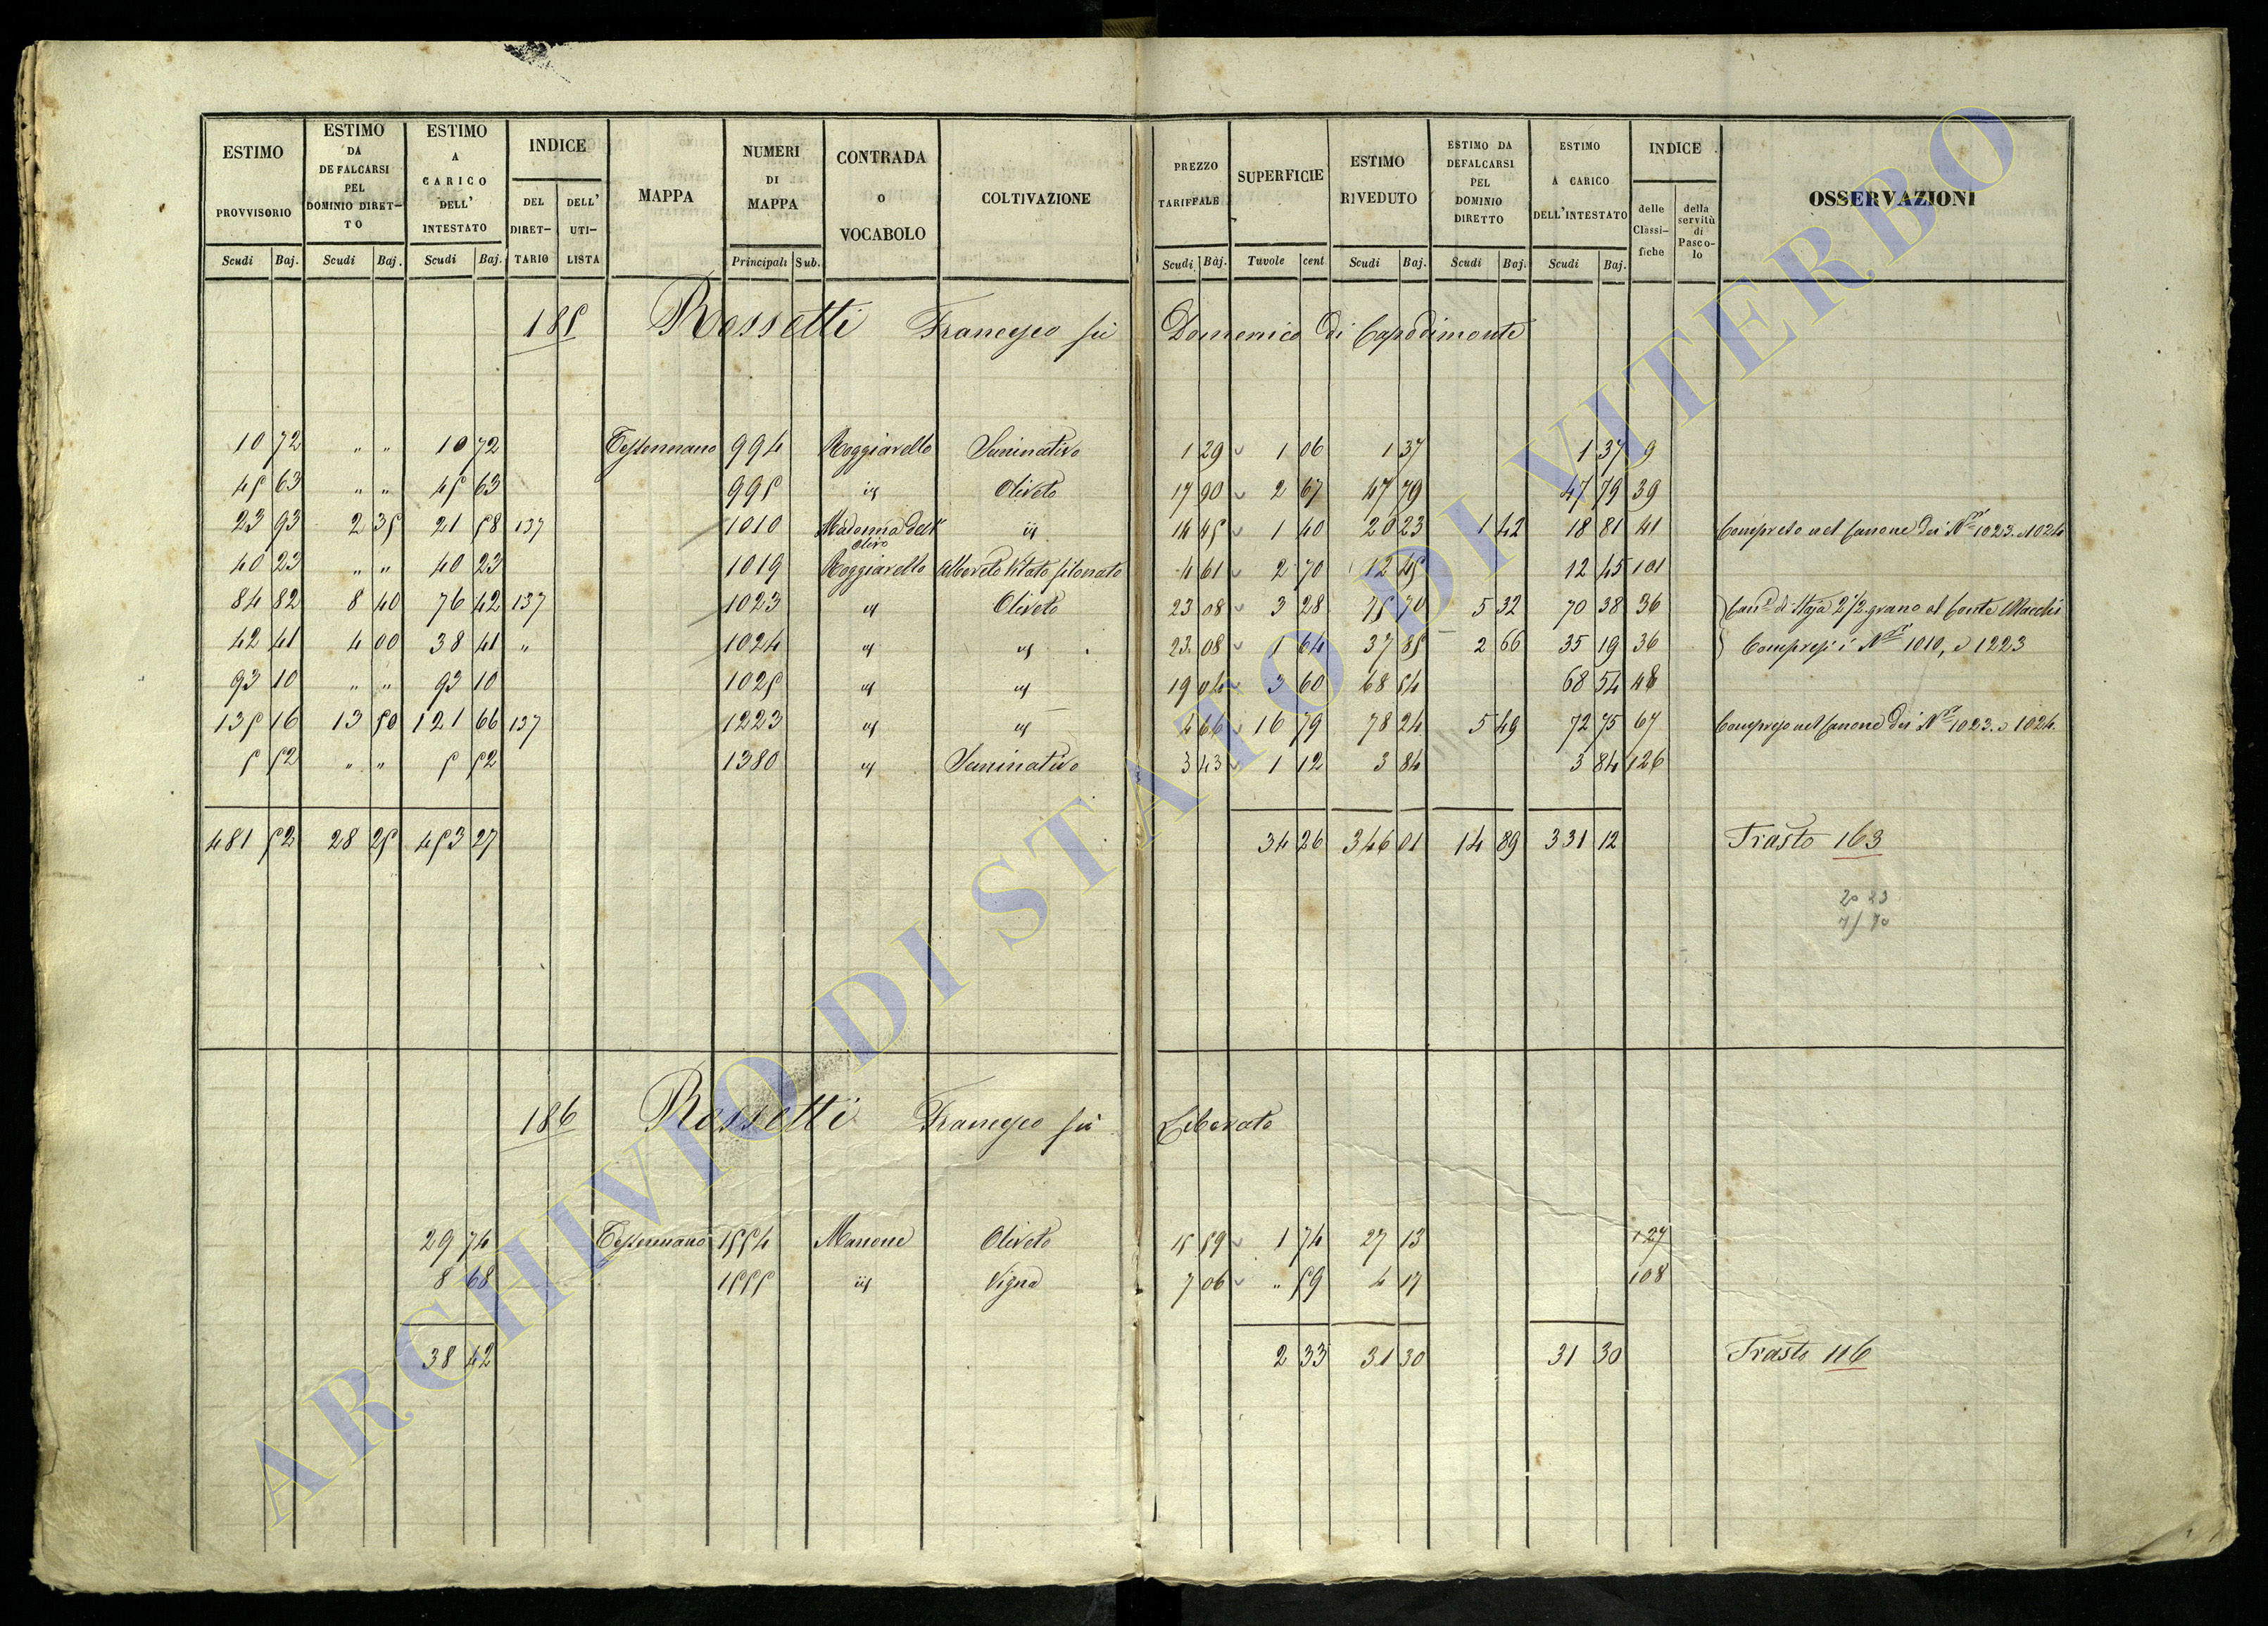 ESTIMO PROVVISORIO Scudi Baj. | ESTIMO DA DEFALCARSI PEL DOMINIO DIRETTO Scudi Baj. | ESTIMO A CARICO DELL' INTESTATO Scudi Baj. | INDICE DEL DIRETTARIO DELL' UTILISTA | MAPPA | NUMERI DI MAPPA Principali Sub. | CONTRADA O VOCABOLO | COLTIVAZIONE | PREZZO TARIFFALE Scudi Baj. | SUPERFICIE Tavole cent. | ESTIMO RIVEDUTO Scudi Baj. | ESTIMO DA DEFALCARSI PEL DOMINIO DIRETTO Scudi Baj. | ESTIMO A CARICO DELL'INTESTATO Scudi Baj. | INDICE delle Classifiche della servitù di Pascolo | OSSERVAZIONI
185 Rossetti Francesco fù Domenico di Capodimonte
10 72 " " 10 72 Tessennano 994 Poggiarello Seminativo 1 29 1 06 1 37 1 37 9
45 63 " " 45 63 995 id Oliveto 17 90 2 67 47 79 47 79 39
23 93 2 35 21 58 137 1010 Madonna dell' Olivo id 14 45 1 40 20 23 1 42 18 81 41 Compreso nel Canone dei Nri 1023. e 1024
40 23 " " 40 23 1019 Poggiarello Alberato Vitato filonato 4 61 2 70 12 45 12 45 101
84 82 8 40 76 42 137 1023 id Oliveto 23 08 3 28 75 70 5 32 70 38 36 Cane di Staja 2 1/2 grano al Conte Macchi
42 41 4 00 38 41 " 1024 id id 23. 08 1 64 37 85 2 66 35 19 36 Compresi i Nri 1010, e 1223
93 10 " " 93 10 1025 id id 19 04 3 60 68 54 68 54 48
135 16 13 50 121 66 137 1223 id id 4 66 16 79 78 24 5 49 72 75 67 Compreso nel Canone dei Nri 1023. e 1024.
5 52 " " 5 52 1380 id Seminativo 3 43 1 12 3 84 3 84 126
481 52 28 25 453 27 34 26 346 01 14 89 331 12 Trasto 163
20 23
75 70
186 Rossetti Francesco fù Liberato
29 74 Tessennano 1554 Marrone Oliveto 15 59 1 74 27 13 127
8 68 1555 id Vigna 7 06 " 59 4 17 108
38 42 2 33 31 30 31 30 Trasto 116
ARCHIVIO DI STATO DI VITERBO